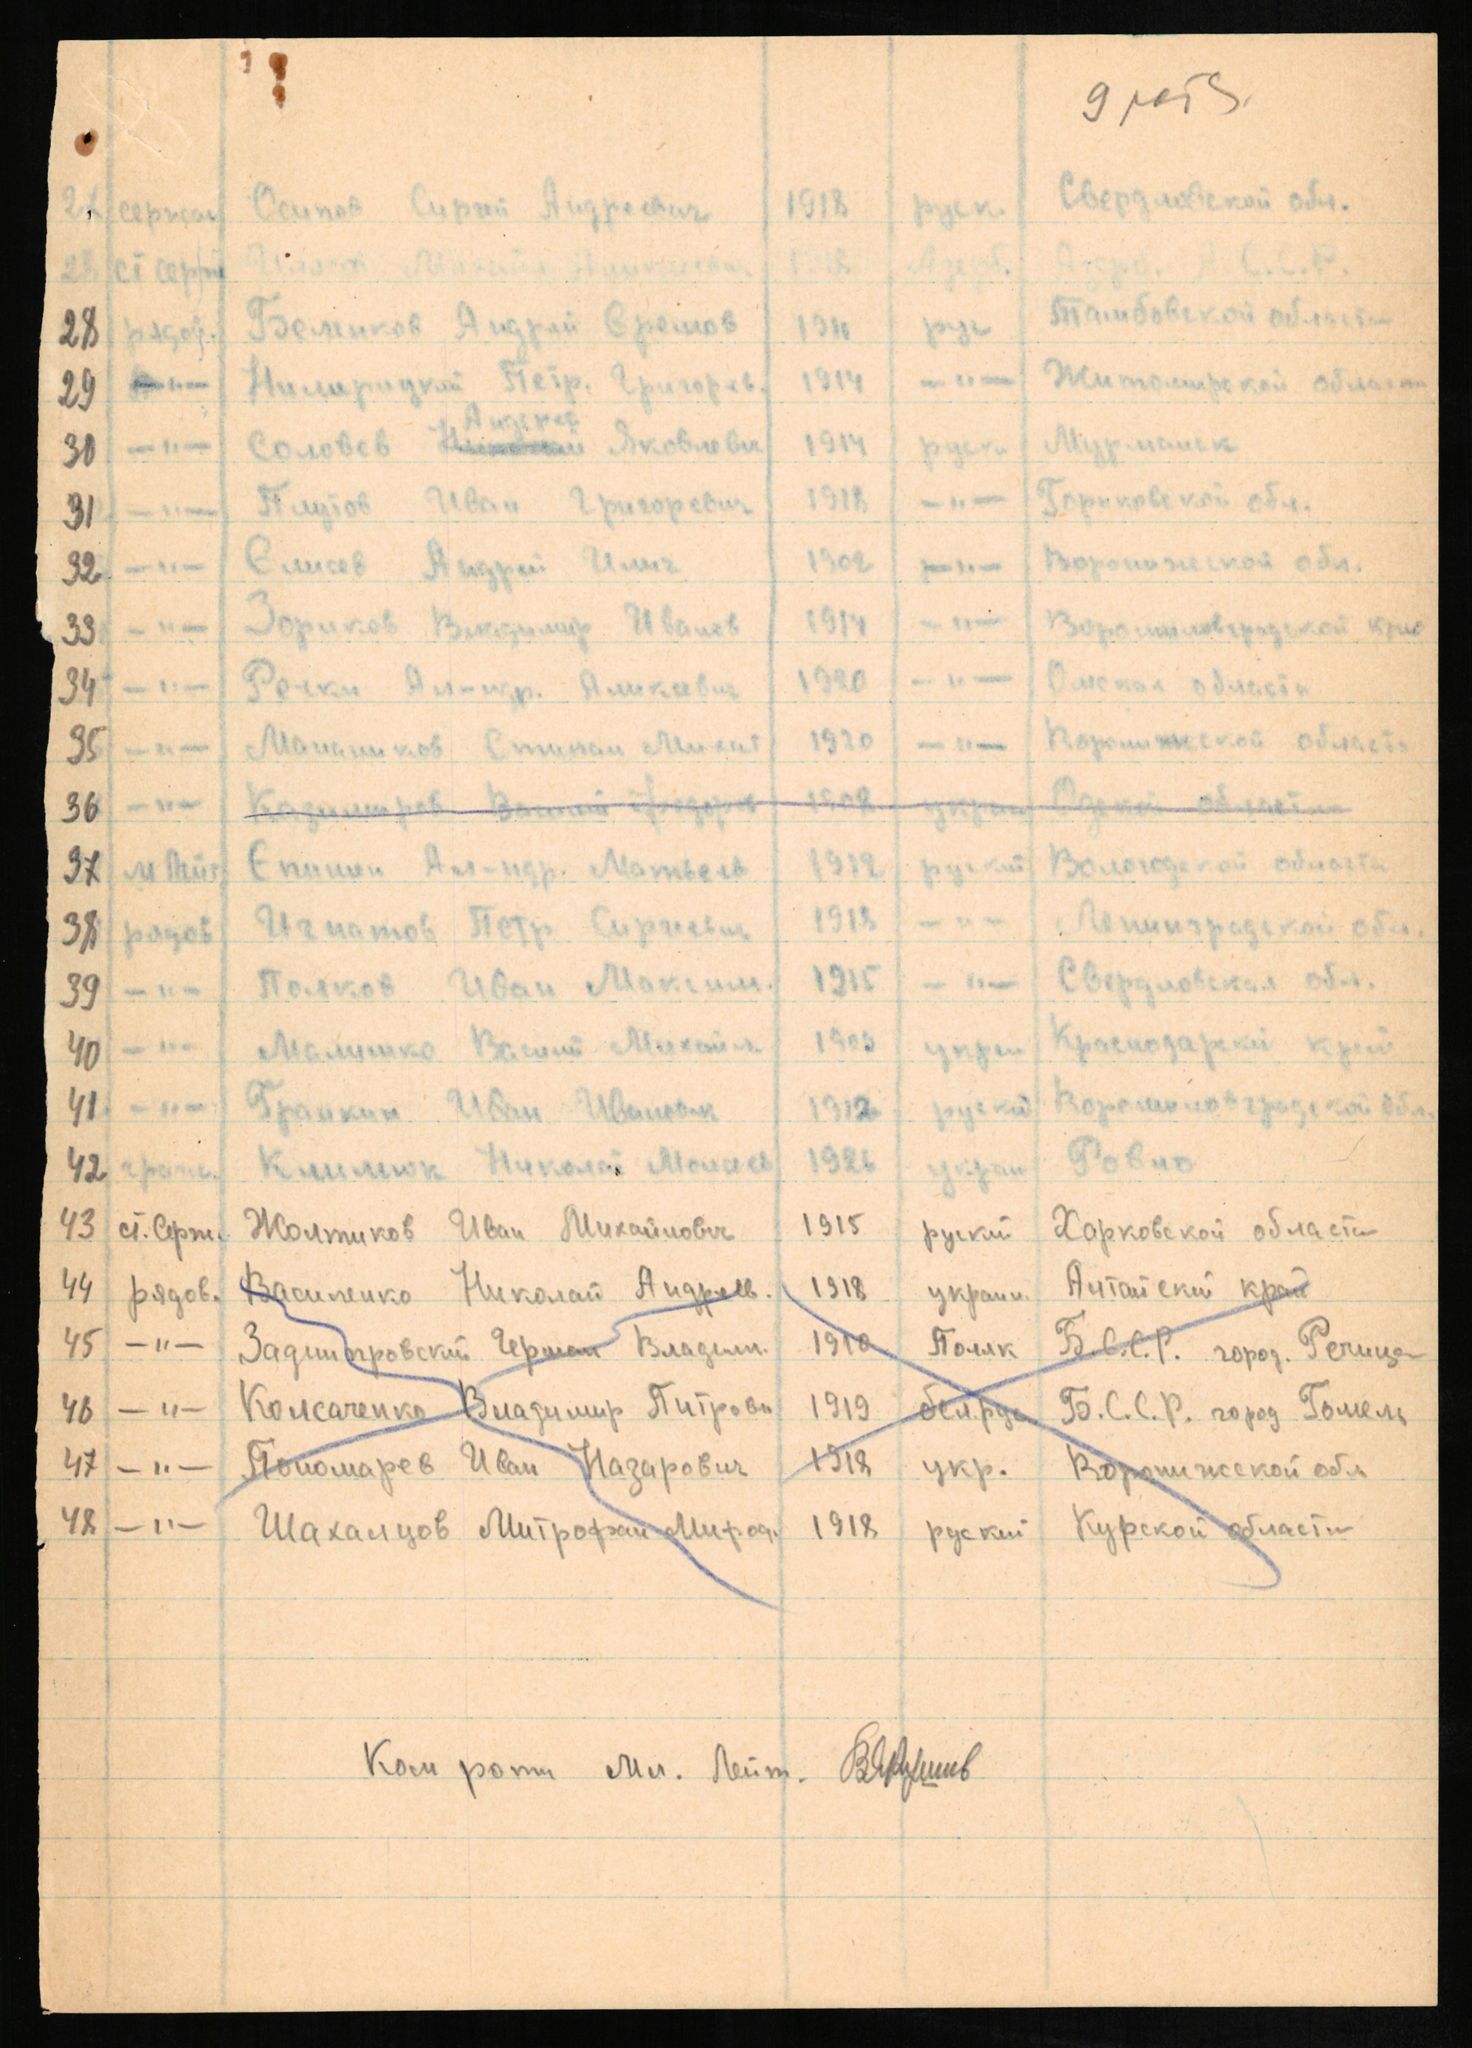 9 рота.
сержан Осипов Сергей Андреевич 1918 руск. Свердловской обл.
ст серж Михаил Азерб. Азерб. С.С.Р.
28 рядов. Беликов Андрей Еремов рус Тамбовской области
29 —"— Петр. Григорев. 1914 —"— Житомирской области
30 —"— Соловев Андрей Яковлевич 1914 руск. Мурманск
31 —"— Плутов Иван Григоревич 1918 —"— Горковской обл.
32 —"— Елисев Андрей Илич 1902 —"— Воронежской обл.
33 —"— Зориков Владимир Иванов 1914 —"— Ворошиловградской
34 —"— Речки Ал-ндр. Алексевич 1920 —"— Омская область
35 —"— Степан Михаил 1920 —"— Воронижской область
36 —"— Казимиров Васший Федоров 1908 украи области
37 мл Лейт Епишин Ал-ндр. Матвеев 1912 руский Вологодской области
38 рядов Игнатов Петр Сиргеевич 1918 —"— Ленинградской обл.
39 —"— Поляков Иван Максим. 1915 —"— Свердловская обл.
40 —"— Малишко Михайл. украи Краснодарский край
41 —"— Гранкин Иван Иванович 1912 руский Ворошиловградской обл.
42 граж. Климюк Николай Моисев 1926 украи Ровно
43 ст. Серж. Жолтиков Иван Михайлович 1915 руский Харковской области
44 рядов. Василенко Николай Андреев. 1918 украин. Алтайский край
45 —"— Заднипровский Герман Владим. 1910 Поляк Б.С.С.Р. город. Речица
46 —"— Колсаченко Владимир Питрови 1919 бел.рус Б.С.С.Р. город Гомель
47 —"— Пономарев Иван Назарович 1918 укр. Воронижской обл
48 —"— Шахалцов Митрофан Мифод. 1918 руский Курской области
Ком роти Мл. Лейт.